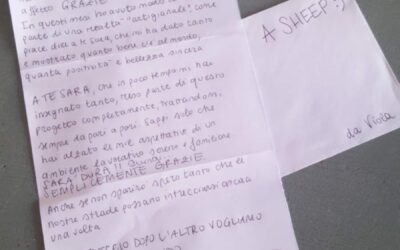 affetto GRAZIE
In questi mesi ho avuto modo
parte di una realtà "artigianale", come
piace dire a te Sara, che mi ha dato tanto
e mostrato quanto bene c'è al mondo,
quanta positività e bellezza sincera
A TE SARA, che in poco tempo mi hai
insegnato tanto, reso parte di questo
progetto completamente, trattandomi
sempre da pari a pari. Sappi solo che
hai alzato le mie aspettative di un
ambiente lavorativo sereno e familiare.
SARÀ DURA
SEMPLICEMENTE GRAZIE.
Anche se non sparirò spero tanto che le
nostre strade possano intrecciarsi ancora
una volta
DOPO L'ALTRO VOGLIAMO
A SHEEP :)
da Viola